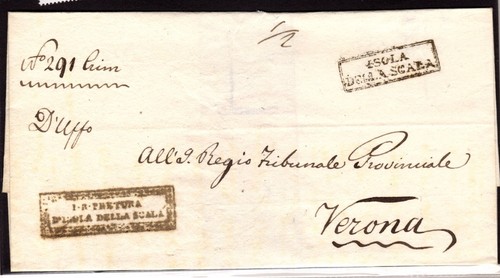 1/2
No 291 Crim
ISOLA
DELLA SCALA
D'Uffo
All'I. Regio Tribunale Provinciale
I·R·PRETURA
D'ISOLA DELLA SCALA
Verona